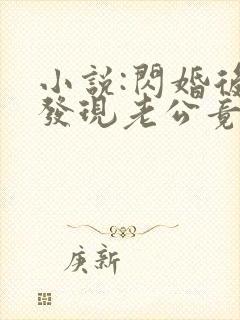 小說:閃婚後
發現老公竟
庚新